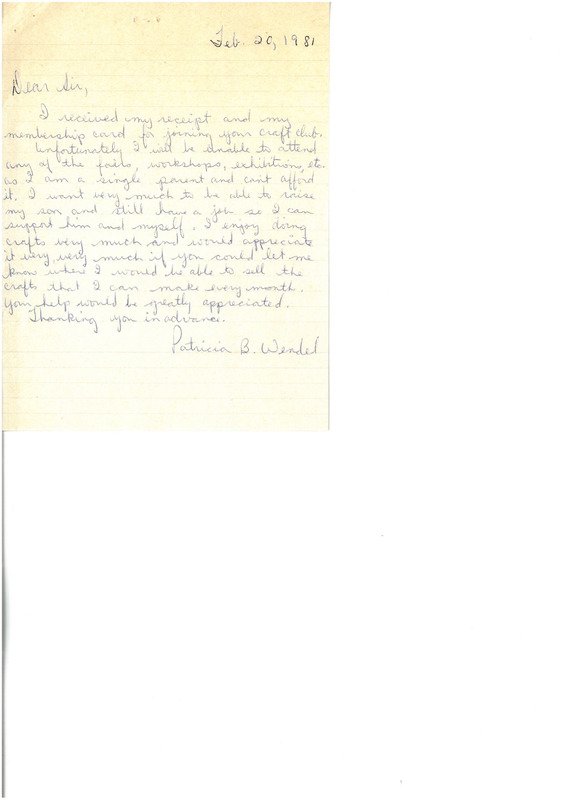 Feb. 20, 1981
Dear Sir,
I received my receipt and my
membership card for joining your craft club.
Unfortunately I will be unable to attend
any of the fairs, workshops, exhibition, etc.
as I am a single parent and can't afford
it. I want very much to be able to raise
my son and still have a job so I can
support him and myself. I enjoy doing
crafts very much and would appreciate
it very, very much if you could let me
know where I would be able to sell the
crafts that I can make every month.
Your help would be greatly appreciated.
Thanking you in advance.
Patricia B. Wendel